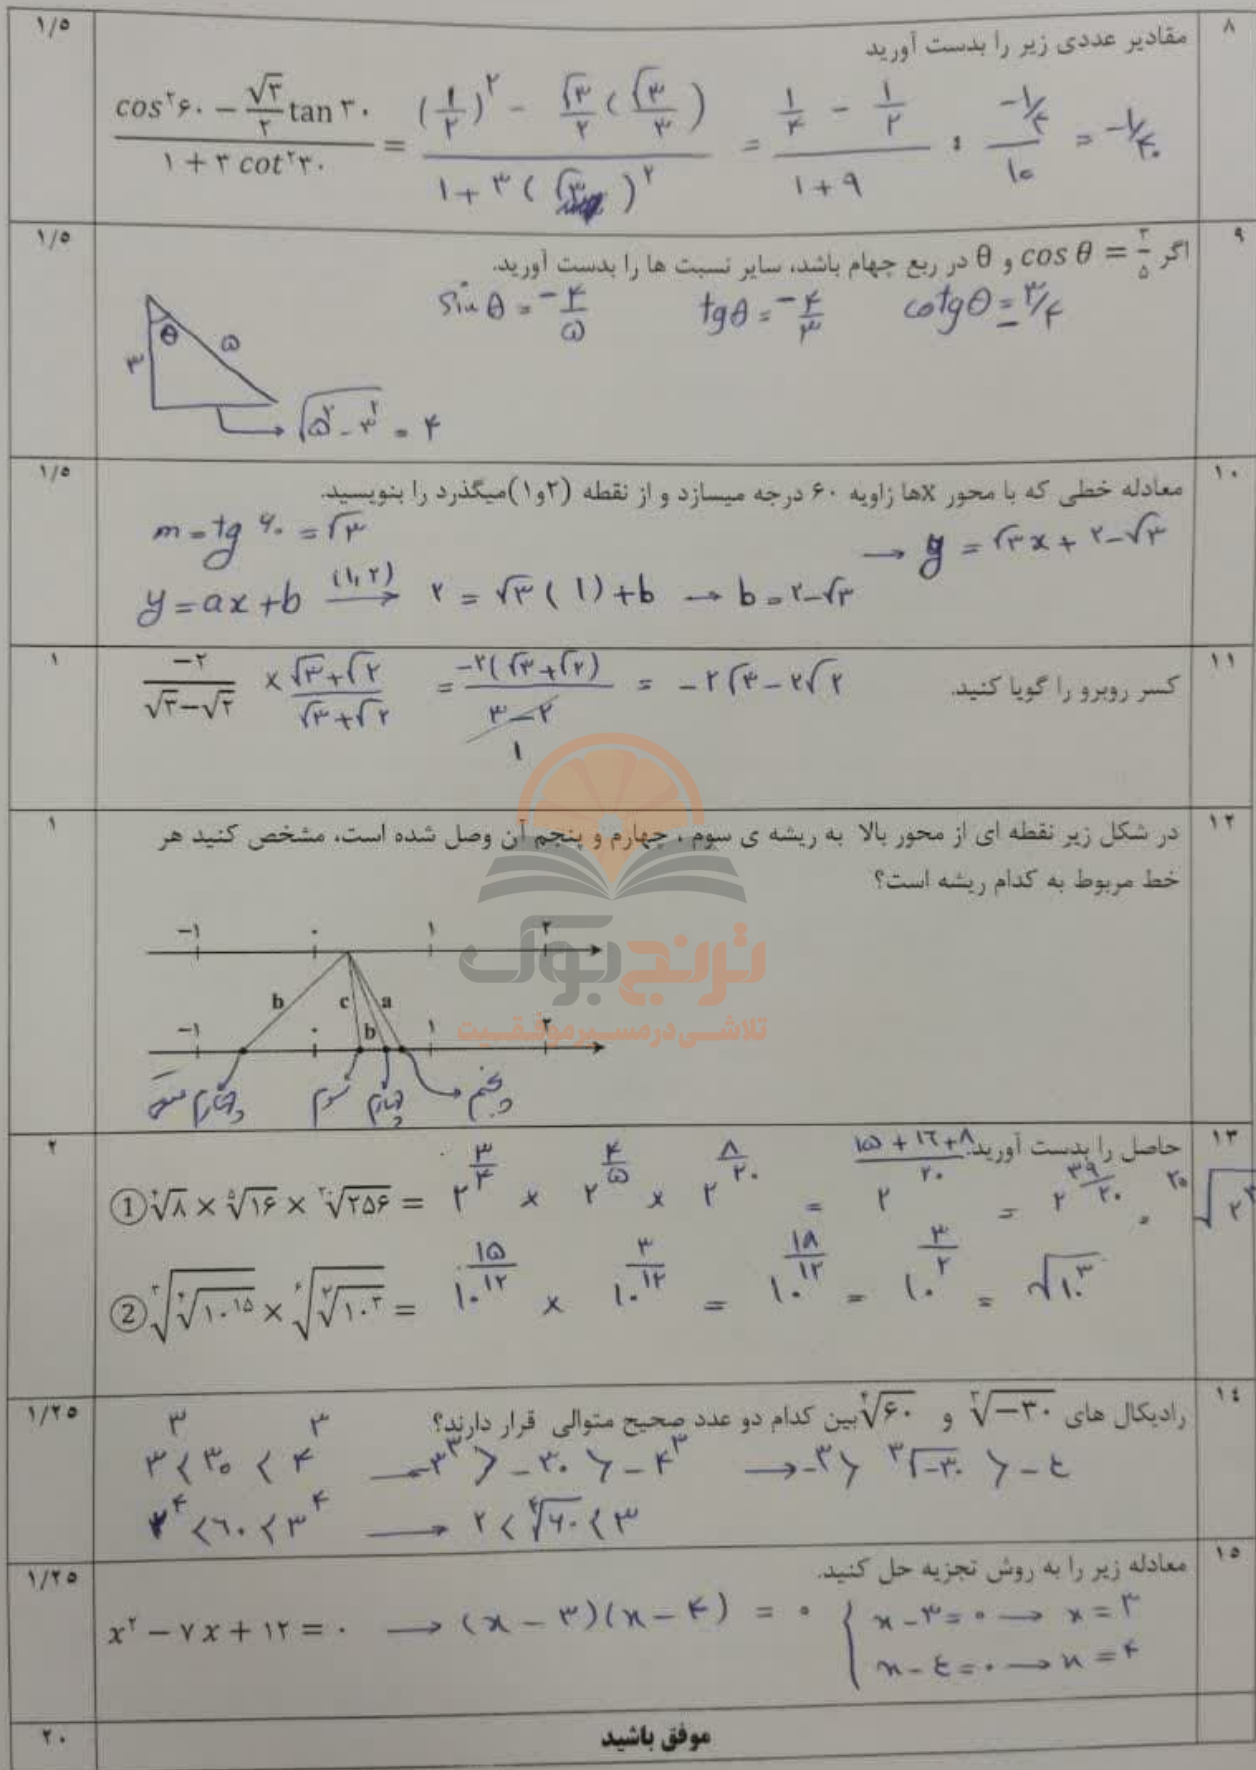 ۸ مقادیر عددی زیر را بدست آورید ۱/۵
cos^۲۶۰ − √۳/۲ tan ۳۰ / ۱ + ۳ cot^۲۳۰ = (۱/۲)^۲ − √۳/۲ (√۳/۳) / ۱ + ۳ (√۳)^۲ = ۱/۴ − ۱/۲ / ۱ + ۹ : −۱/۴ / ۱۰ = −۱/۴۰
۹ اگر cos θ = ۳/۵ و θ در ربع چهام باشد، سایر نسبت ها را بدست آورید. ۱/۵
sin θ = −۴/۵ tgθ = −۴/۳ cotgθ = −۳/۴
θ ۵
۳
√۵^۲ − ۳^۲ = ۴
۱۰ معادله خطی که با محور xها زاویه ۶۰ درجه میسازد و از نقطه (۲و۱)میگذرد را بنویسید. ۱/۵
m = tg ۶۰ = √۳ → y = √۳x + ۲−√۳
y = ax + b (۱,۲)→ ۲ = √۳ (۱) + b → b = ۲−√۳
۱۱ کسر روبرو را گویا کنید. ۱
−۲/√۳−√۲ × √۳+√۲/√۳+√۲ = −۲(√۳+√۲)/۳−۲ = −۲√۳−۲√۲
۱
۱۲ در شکل زیر نقطه ای از محور بالا به ریشه ی سوم ، چهارم و پنجم آن وصل شده است، مشخص کنید هر ۱
خط مربوط به کدام ریشه است؟
−۱ ۰ ۱ ۲
b c a
b
−۱ ۰ ۱ ۲
چهارم سوم چهارم پنجم
ترنج بوک
تلاشی در مسیر موفقیت
۱۳ حاصل را بدست آورید. ۲
① ∜۸ × ⁵√۱۶ × ²⁰√۲۵۶ = ۲^(۳/۴) × ۲^(۴/۵) × ۲^(۸/۲۰) = ۲^(۱۵+۱۶+۸/۲۰) = ۲^(۳۹/۲۰) =
② ³√∜۱۰^۱۵ × ⁶√√۱۰^۳ = ۱۰^(۱۵/۱۲) × ۱۰^(۳/۱۲) = ۱۰^(۱۸/۱۲) = ۱۰^(۳/۲) = √۱۰^۳
۱۴ رادیکال های ∛−۳۰ و ∜۶۰ بین کدام دو عدد صحیح متوالی قرار دارند؟ ۱/۲۵
۳^۳ < ۳۰ < ۴^۳ → −۳^۳ > −۳۰ > −۴^۳ → −۳ > ∛−۳۰ > −٤
۲^۴ < ٦۰ < ۳^۴ → ۲ < ∜٦۰ < ۳
۱۵ معادله زیر را به روش تجزیه حل کنید. ۱/۲۵
x^۲ − ۷x + ۱۲ = ۰ → (x − ۳)(x − ۴) = ۰ { x − ۳ = ۰ → x = ۳
x − ٤ = ۰ → x = ۴
موفق باشید ۲۰